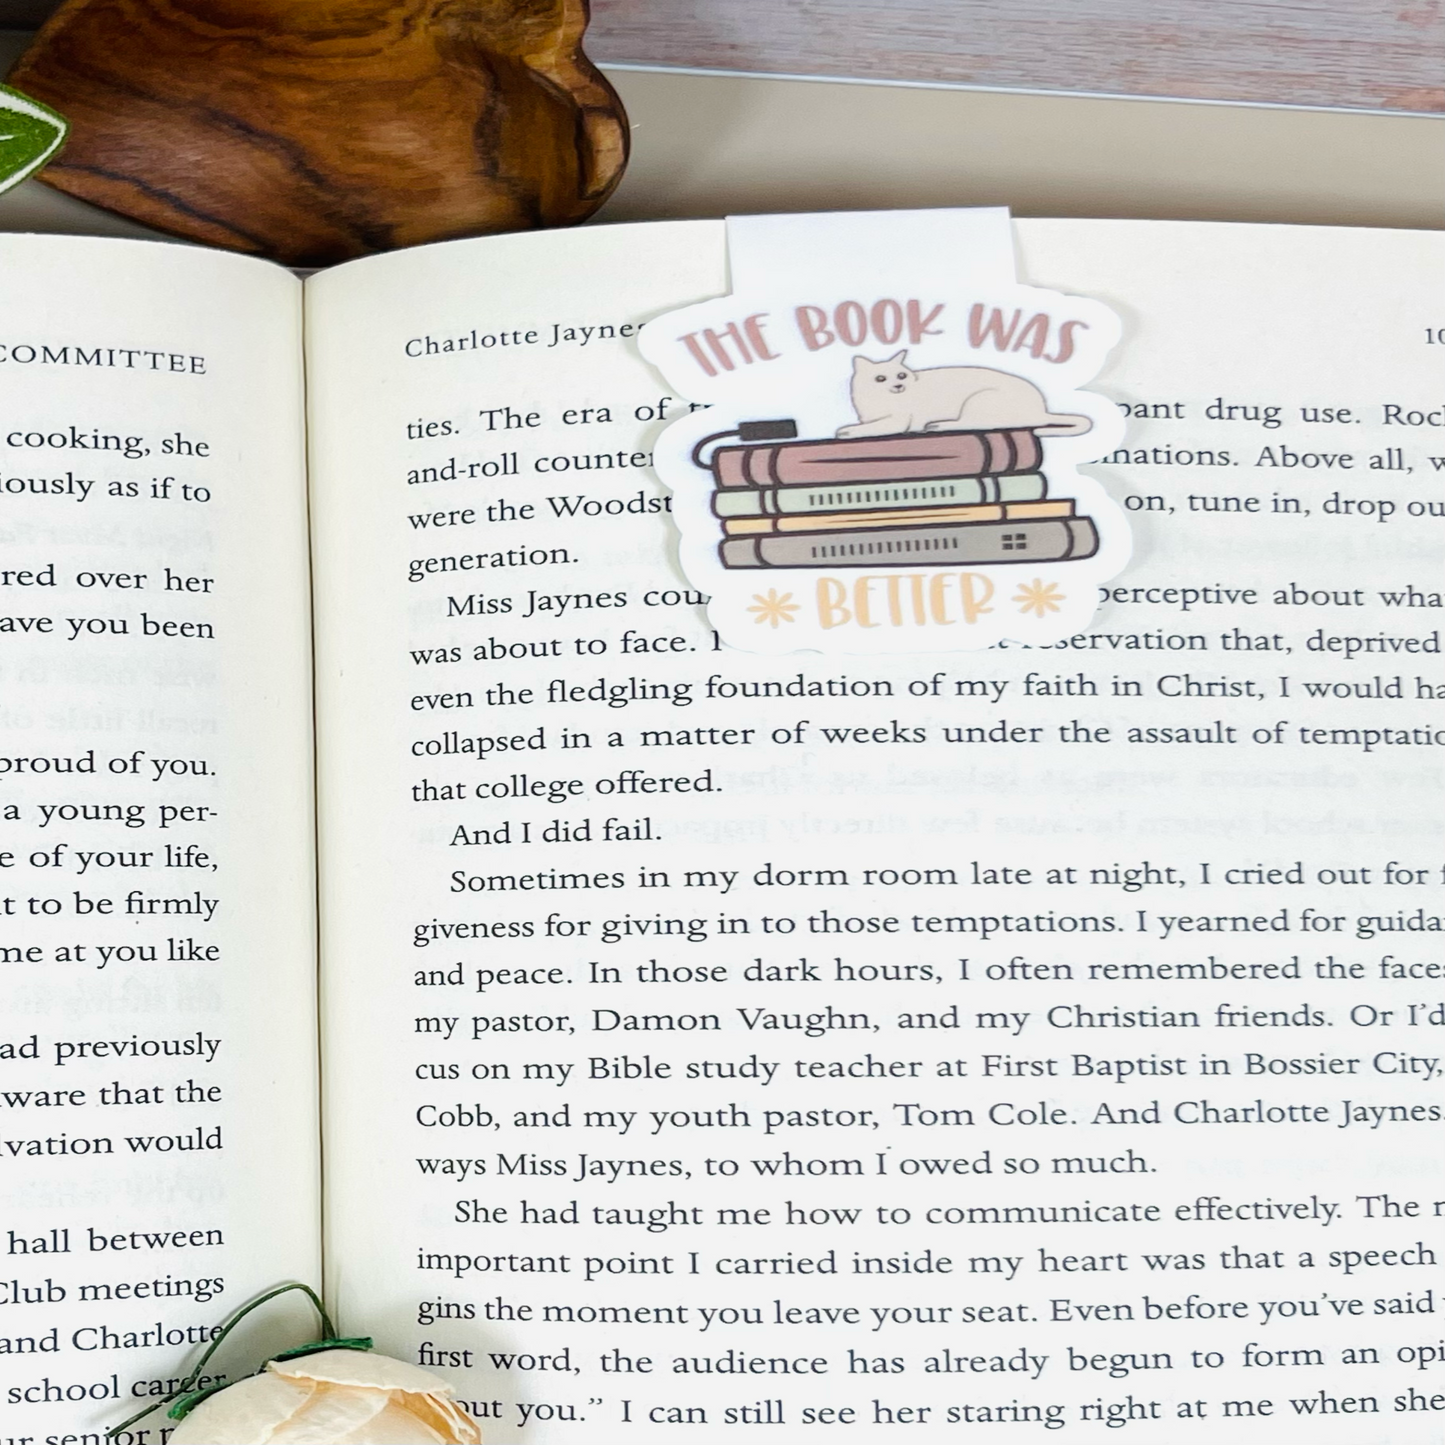 COMMITTEE
cooking, she
iously as if to
red over her
ave you been
proud of you.
a young per-
e of your life,
t to be firmly
me at you like
ad previously
ware that the
vation would
hall between
Club meetings
and Charlotte
school career
ur senior
Charlotte Jaynes
10
THE BOOK WAS
BETTER
ties. The era of pant drug use. Roc
and-roll counter nations. Above all, w
were the Woodst on, tune in, drop ou
generation.
Miss Jaynes cou perceptive about wha
was about to face. I servation that, deprived
even the fledgling foundation of my faith in Christ, I would ha
collapsed in a matter of weeks under the assault of temptatio
that college offered.
And I did fail.
Sometimes in my dorm room late at night, I cried out for f
giveness for giving in to those temptations. I yearned for guida
and peace. In those dark hours, I often remembered the faces
my pastor, Damon Vaughn, and my Christian friends. Or I'd
cus on my Bible study teacher at First Baptist in Bossier City,
Cobb, and my youth pastor, Tom Cole. And Charlotte Jaynes.
ways Miss Jaynes, to whom I owed so much.
She had taught me how to communicate effectively. The m
important point I carried inside my heart was that a speech
gins the moment you leave your seat. Even before you've said
first word, the audience has already begun to form an opi
out you.” I can still see her staring right at me when she